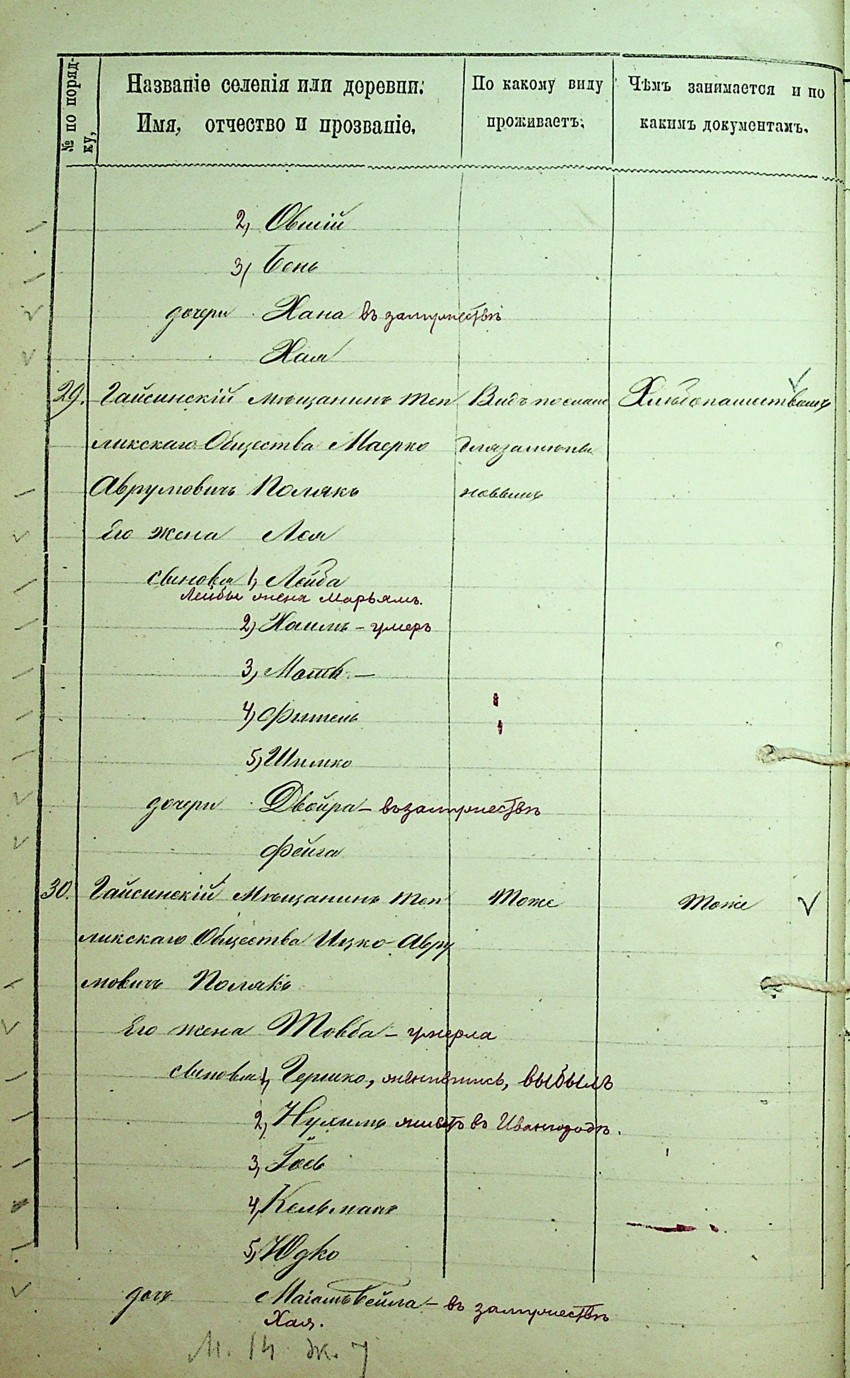 № по поряд-
ку,
Названіе селенія или деревни:
Имя, отчество и прозваніе.
По какому виду
проживаетъ:
Чѣмъ занимается и по
какимъ документамъ.
2, Овшій
3, Бень
дочери Хана въ замужествѣ
Хая
29. Гайсинскій мѣщанинъ Теп
ликскаго Общества Маерко
Аврумовичъ Полякъ
Его жена Лея
сыновья 1, Лейба
Лейбы жена Марьямъ.
2, Хаимъ – умеръ
3, Моть –
4, Фитель
5, Шимко
дочери Двойра – въ замужествѣ
Фейга
Видъ
Хлѣбопашествомъ
30. Гайсинскій Мѣщанинъ Теп
ликскаго Общества Ицко Авру
мовичъ Полякъ
Тоже
Тоже
Его жена Товба – умерла
сыновья 1, Гершко, женившись, выбылъ
2, Нухимъ живетъ въ Ивангородѣ.
3, Гось
4, Кельманъ
5, Юдко
дочь Бейла – въ замужествѣ
Хая.
М. 14 ж. 7